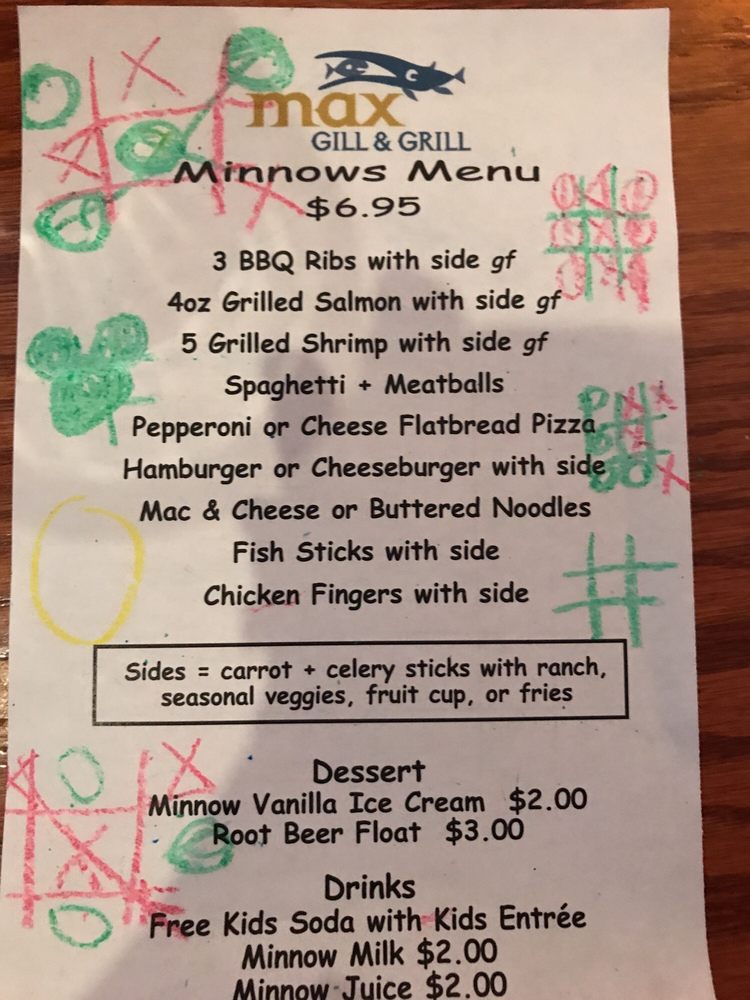 max
GILL & GRILL
Minnows Menu
$6.95
3 BBQ Ribs with side gf
4oz Grilled Salmon with side gf
5 Grilled Shrimp with side gf
Spaghetti + Meatballs
Pepperoni or Cheese Flatbread Pizza
Hamburger or Cheeseburger with side
Mac & Cheese or Buttered Noodles
Fish Sticks with side
Chicken Fingers with side
Sides = carrot + celery sticks with ranch,
seasonal veggies, fruit cup, or fries
Dessert
Minnow Vanilla Ice Cream $2.00
Root Beer Float $3.00
Drinks
Free Kids Soda with Kids Entrée
Minnow Milk $2.00
Minnow Juice $2.00